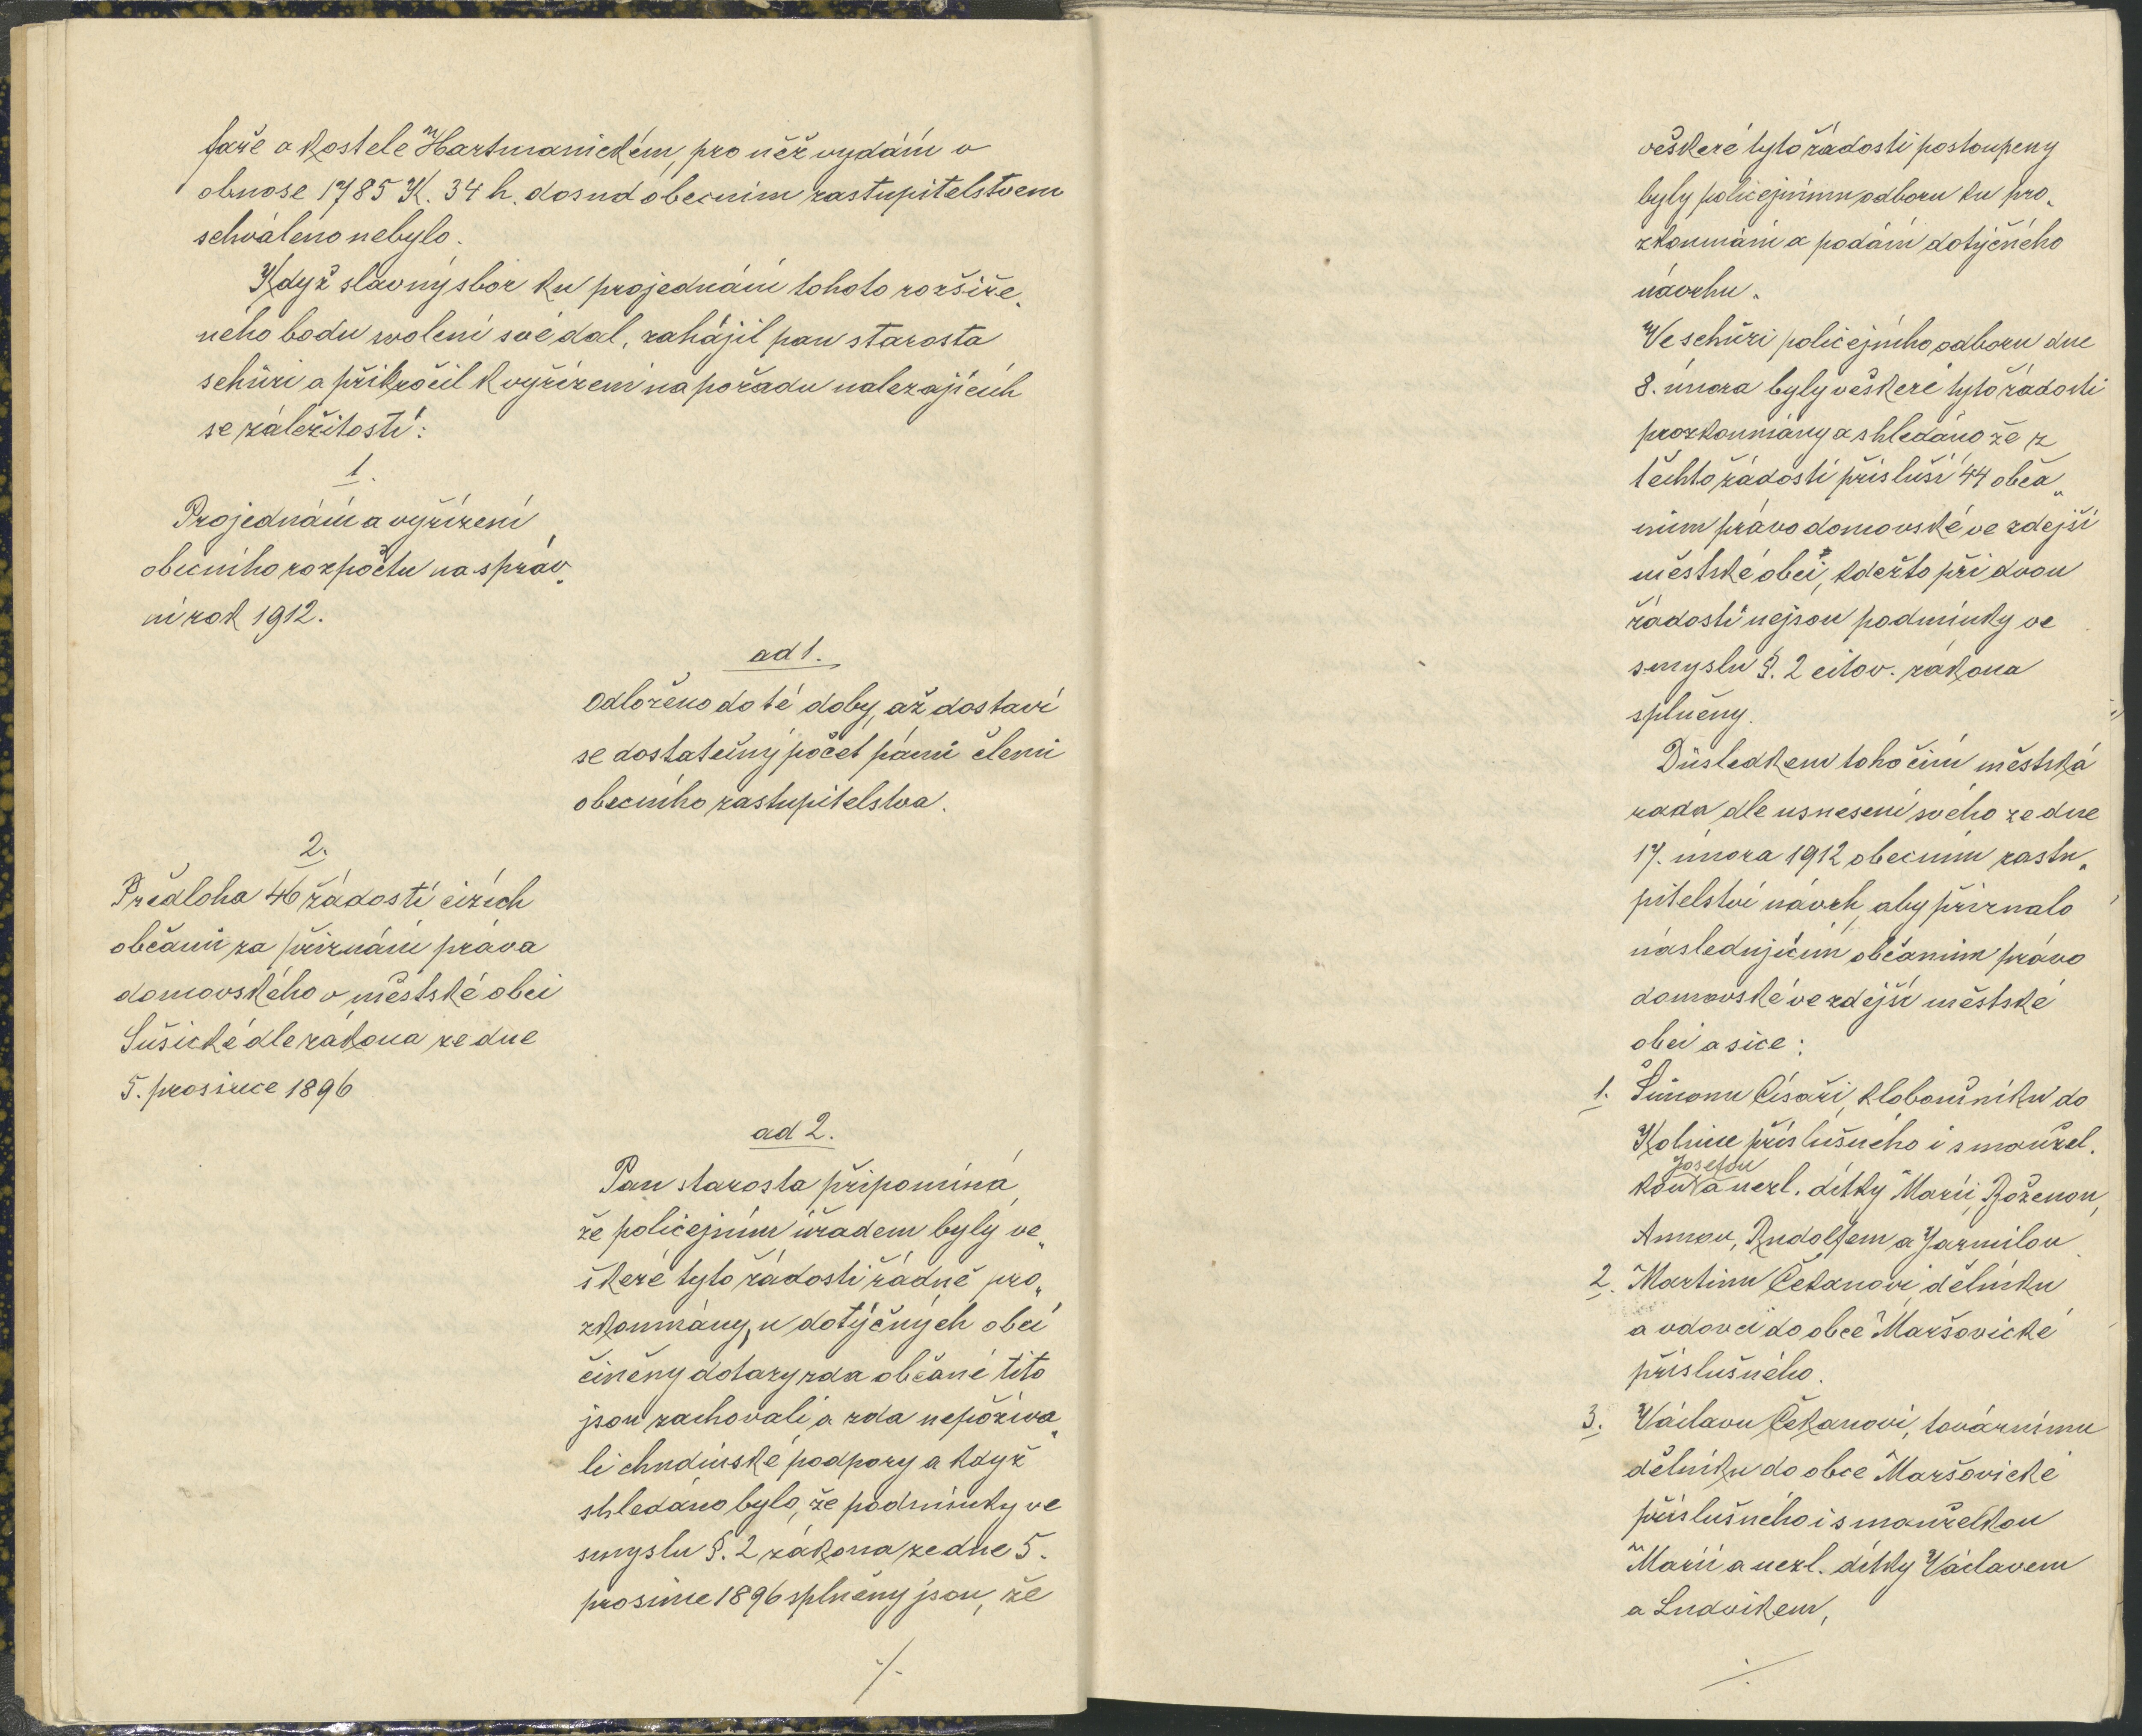 faře a kostele Hartmanickém, pro něž vydání v
obnose 1785 K. 34 h. dosud obecním zastupitelstvem
schváleno nebylo.
Když slavný sbor ku projednání tohoto rozšíře„
ného bodu svolení své dal, zahájil pan starosta
schůzi a přikročil k vyřízení na pořadu nalezajících
se záležitostí:
1.
Projednání a vyřízení
obecního rozpočtu na správ„
ní rok 1912.
ad 1.
Odloženo do té doby, až dostaví
se dostatečný počet pánů členů
obecního zastupitelstva.
2.
Předloha 46 žádostí cizích
občanů za přiznání práva
domovského v městské obci
Sušické dle zákona ze dne
5. prosince 1896
ad 2.
Pan starosta připomíná,
že policejním úřadem byly ve„
škeré tyto žádosti řádně pro„
zkoumány, u dotýčných obcí
činěny dotazy zda občané tito
jsou zachovalí a zda nepožíva„
li chudinské podpory a když
shledáno bylo, že podmínky ve
smyslu §. 2 zákona ze dne 5.
prosince 1896 splněny jsou, že
./.
veškeré tyto žádosti postoupeny
byly policejnímu odboru ku pro„
zkoumání a podání dotýčného
návrhu.
Ve schůzi policejního odboru dne
8. února byly veškeré tyto žádosti
prozkoumány a shledáno že z
těchto žádostí přísluší 44 obča„
nům právo domovské ve zdejší
městské obci, kdežto při dvou
žádostí nejsou podmínky ve
smyslu §. 2 citov. zákona
splněny.
Důsledkem toho činí městská
rada dle usnesení svého ze dne
17. února 1912 obecním zastu„
pitelství návrh, aby přiznalo
následujícím občanům právo
domovské ve zdejší městské
obci a sice:
1. Šimonu Císaři, kloboučníku do
Kolince příslušného i s manžel.
Josefou
kou a nezl. dítky Marií, Boženou,
Annou, Rudolfem a Jarmilou
2. Martinu Čekanovi, dělníku
a vdovci do obce Maršovické
příslušného.
3. Václavu Čekanovi, továrnímu
dělníku do obce Maršovické
příslušného i s manželkou
Marií a nezl. dítky Václavem
a Ludvíkem,
./.